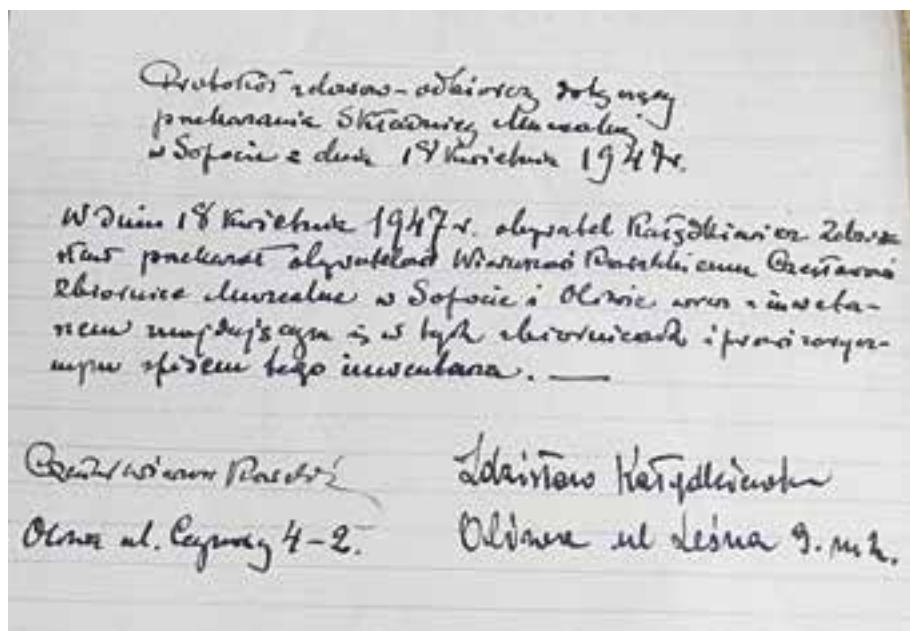 Protokół zdawczo-odbiorczy dotyczący
przekazania Składnicy Muzealnej
w Sopocie z dnia 18 Kwietnia 1947 r.
W dniu 18 Kwietnia 1947 r. obywatel Kałędkiewicz Zdzi
sław przekazał obywatelowi Czesławowi
Zbiornice Muzealne w Sopocie i Oliwie wraz z inwenta-
rzem znajdującym się w tych zbiornicach i prowizorycz-
nym spisem tego inwentarza. —
Oliwa ul. 4-2.
Zdzisław
Oliwa ul Leśna 9. m 2.